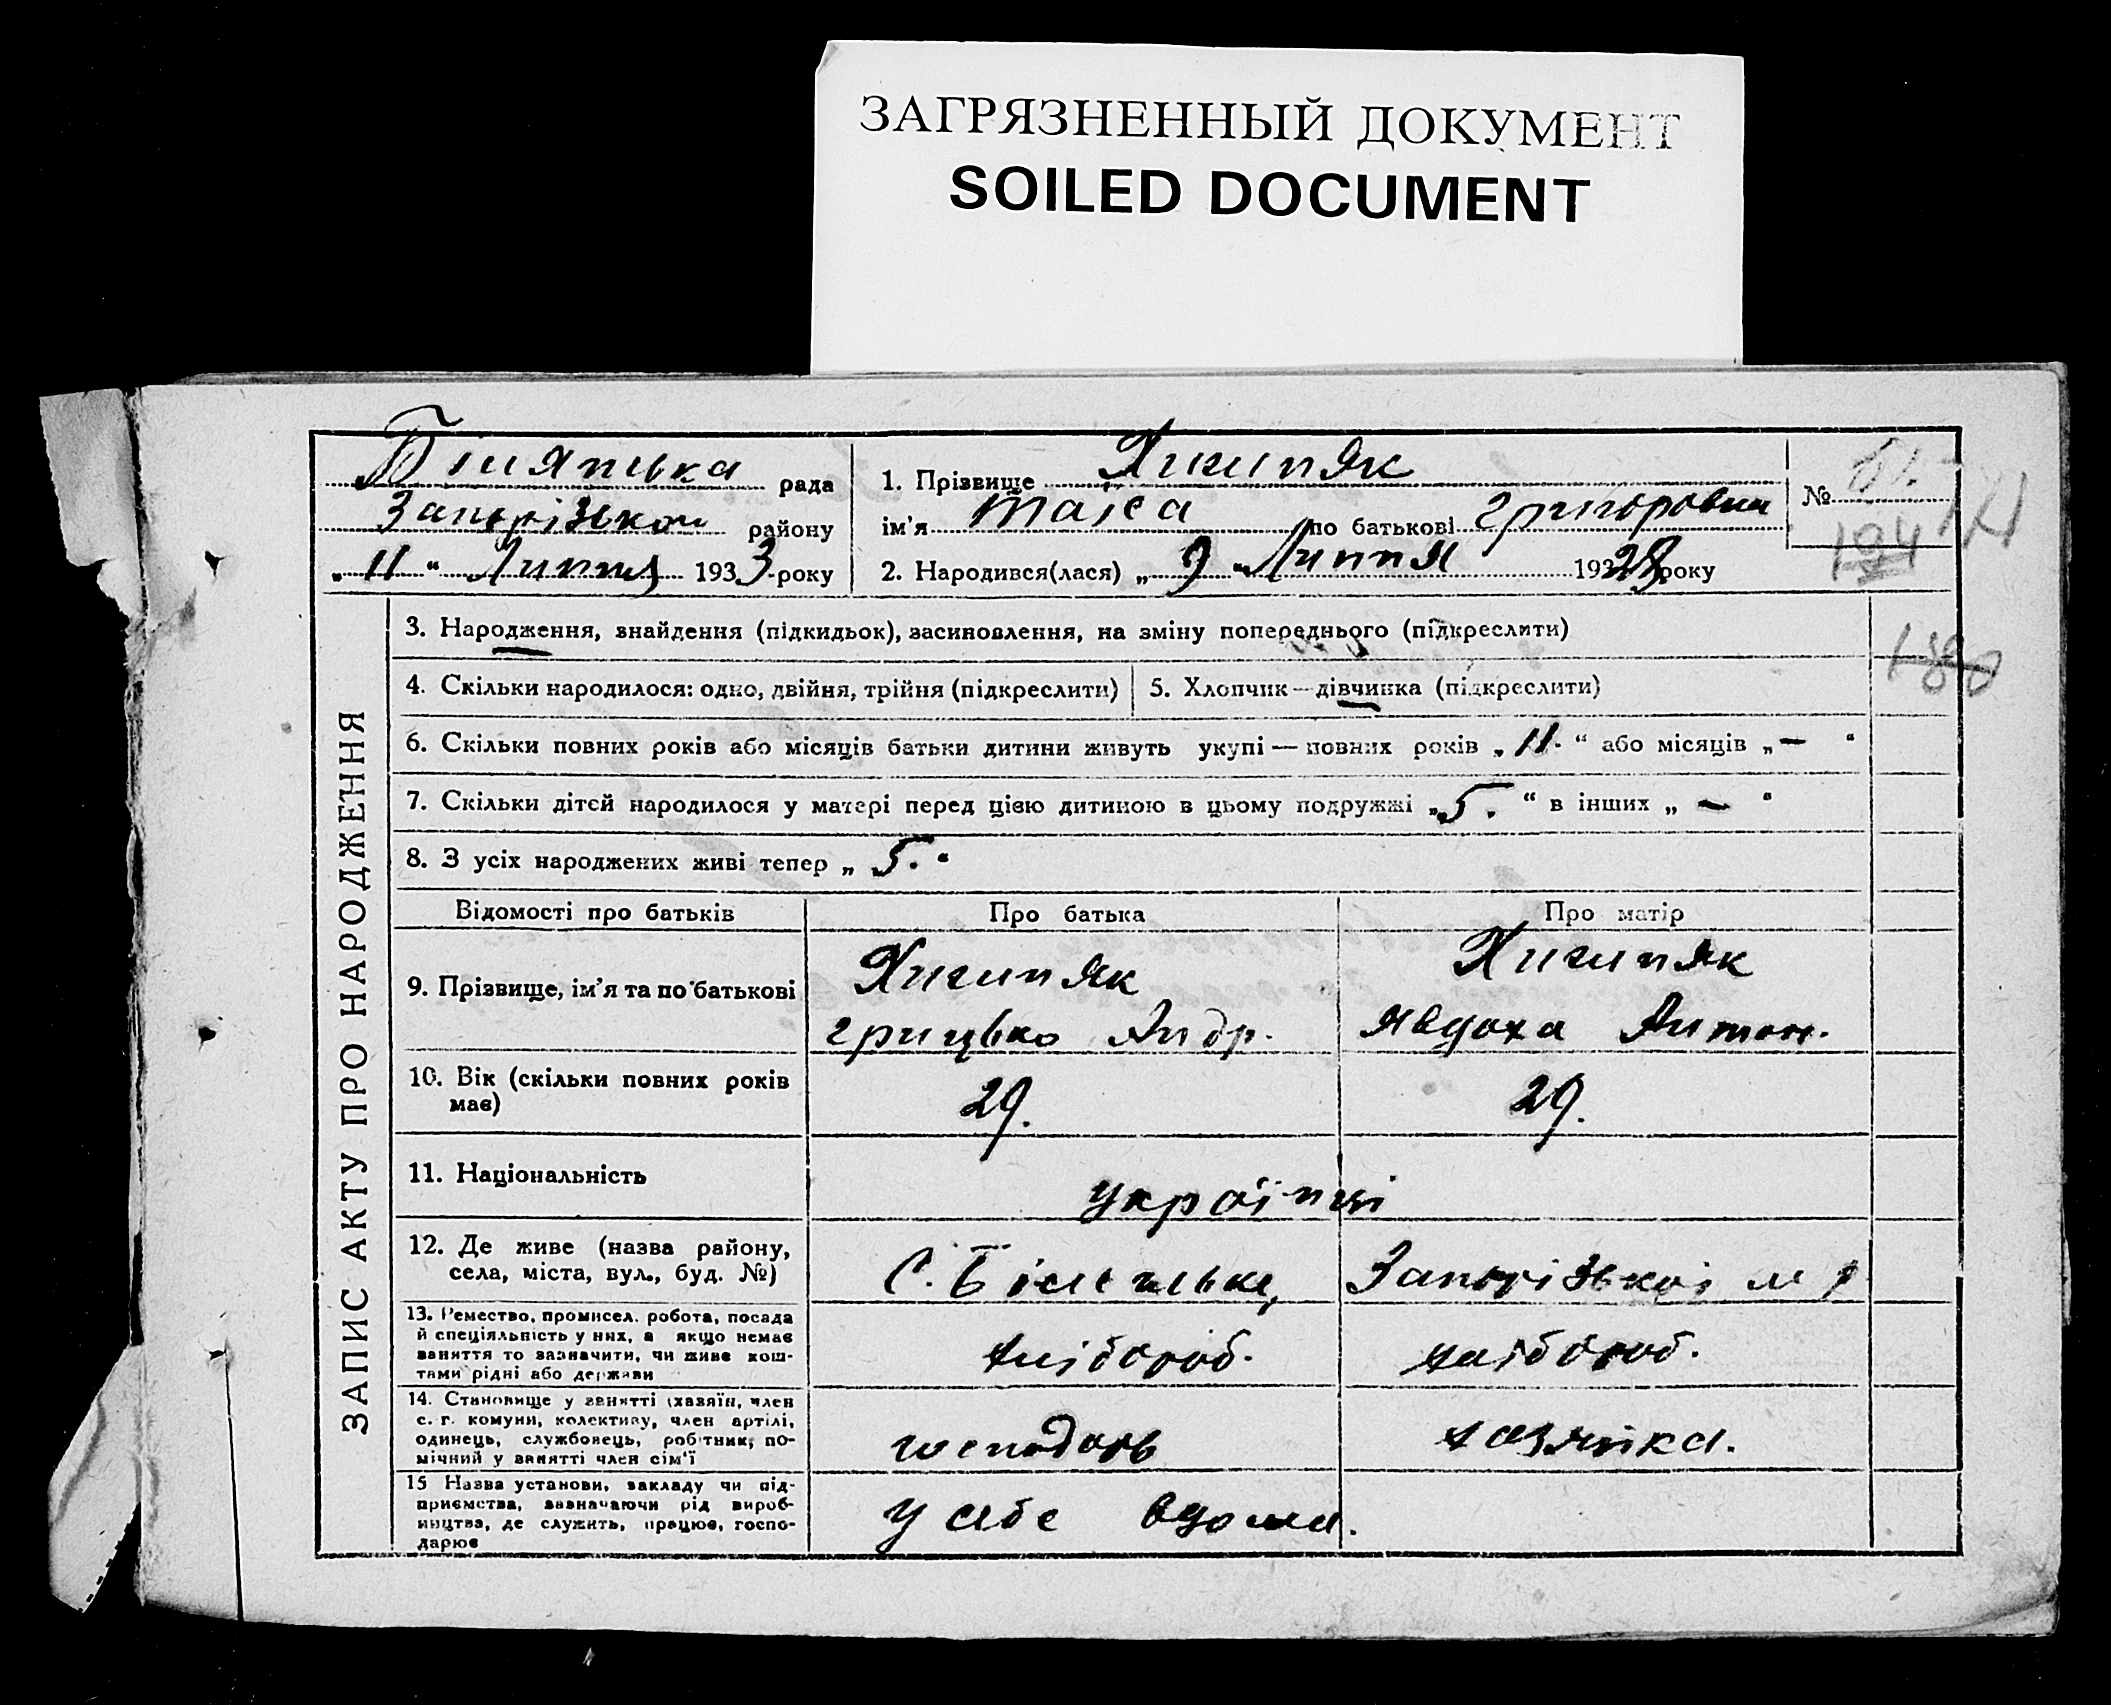 ЗАГРЯЗНЕННЫЙ ДОКУМЕНТ
SOILED DOCUMENT
рада
району
„ 11 “ Липня 1933 року
1. Прізвище Хигиняк
ім'я Таіса по батькові Григоровна
2. Народився(лася) „ 9 “ Липня 1928 року
№ 51.
194
ЗАПИС АКТУ ПРО НАРОДЖЕННЯ
3. Народження, знайдення (підкидьок), засиновлення, на зміну попереднього (підкреслити)
180
4. Скільки народилося: одно, двійня, трійня (підкреслити)
5. Хлопчик — дівчинка (підкреслити)
6. Скільки повних років або місяців батьки дитини живуть укупі — повних років „ 11. “ або місяців „ — “
7. Скільки дітей народилося у матері перед цією дитиною в цьому подружжі „ 5. “ в інших „ — “
8. З усіх народжених живі тепер „ 5. “
Відомості про батьків
Про батька
Про матір
9. Прізвище, ім'я та по батькові
Хигиняк
Грицько Андр.
Хигиняк
Явдоха Антон.
10. Вік (скільки повних років
має)
29.
29.
11. Національність
українці
12. Де живе (назва району,
села, міста, вул., буд. №)
13. Ремество, промисел. робота, посада
й спеціяльність у них, а якщо немає
заняття то зазначити, чи живе кош-
тами рідні або держави
хлібороб.
хлібороб.
14. Становище у занятті (хазяїн, член
с. г. комуни, колективу, член артілі,
одинець, службовець, робітник, по-
мічний у занятті член сім'ї
господарь
хазяйка.
15 Назва установи, закладу чи під-
приємства, зазначаючи рід вироб-
ництва, де служить, працює, госпо-
дарює
у себе вдома.